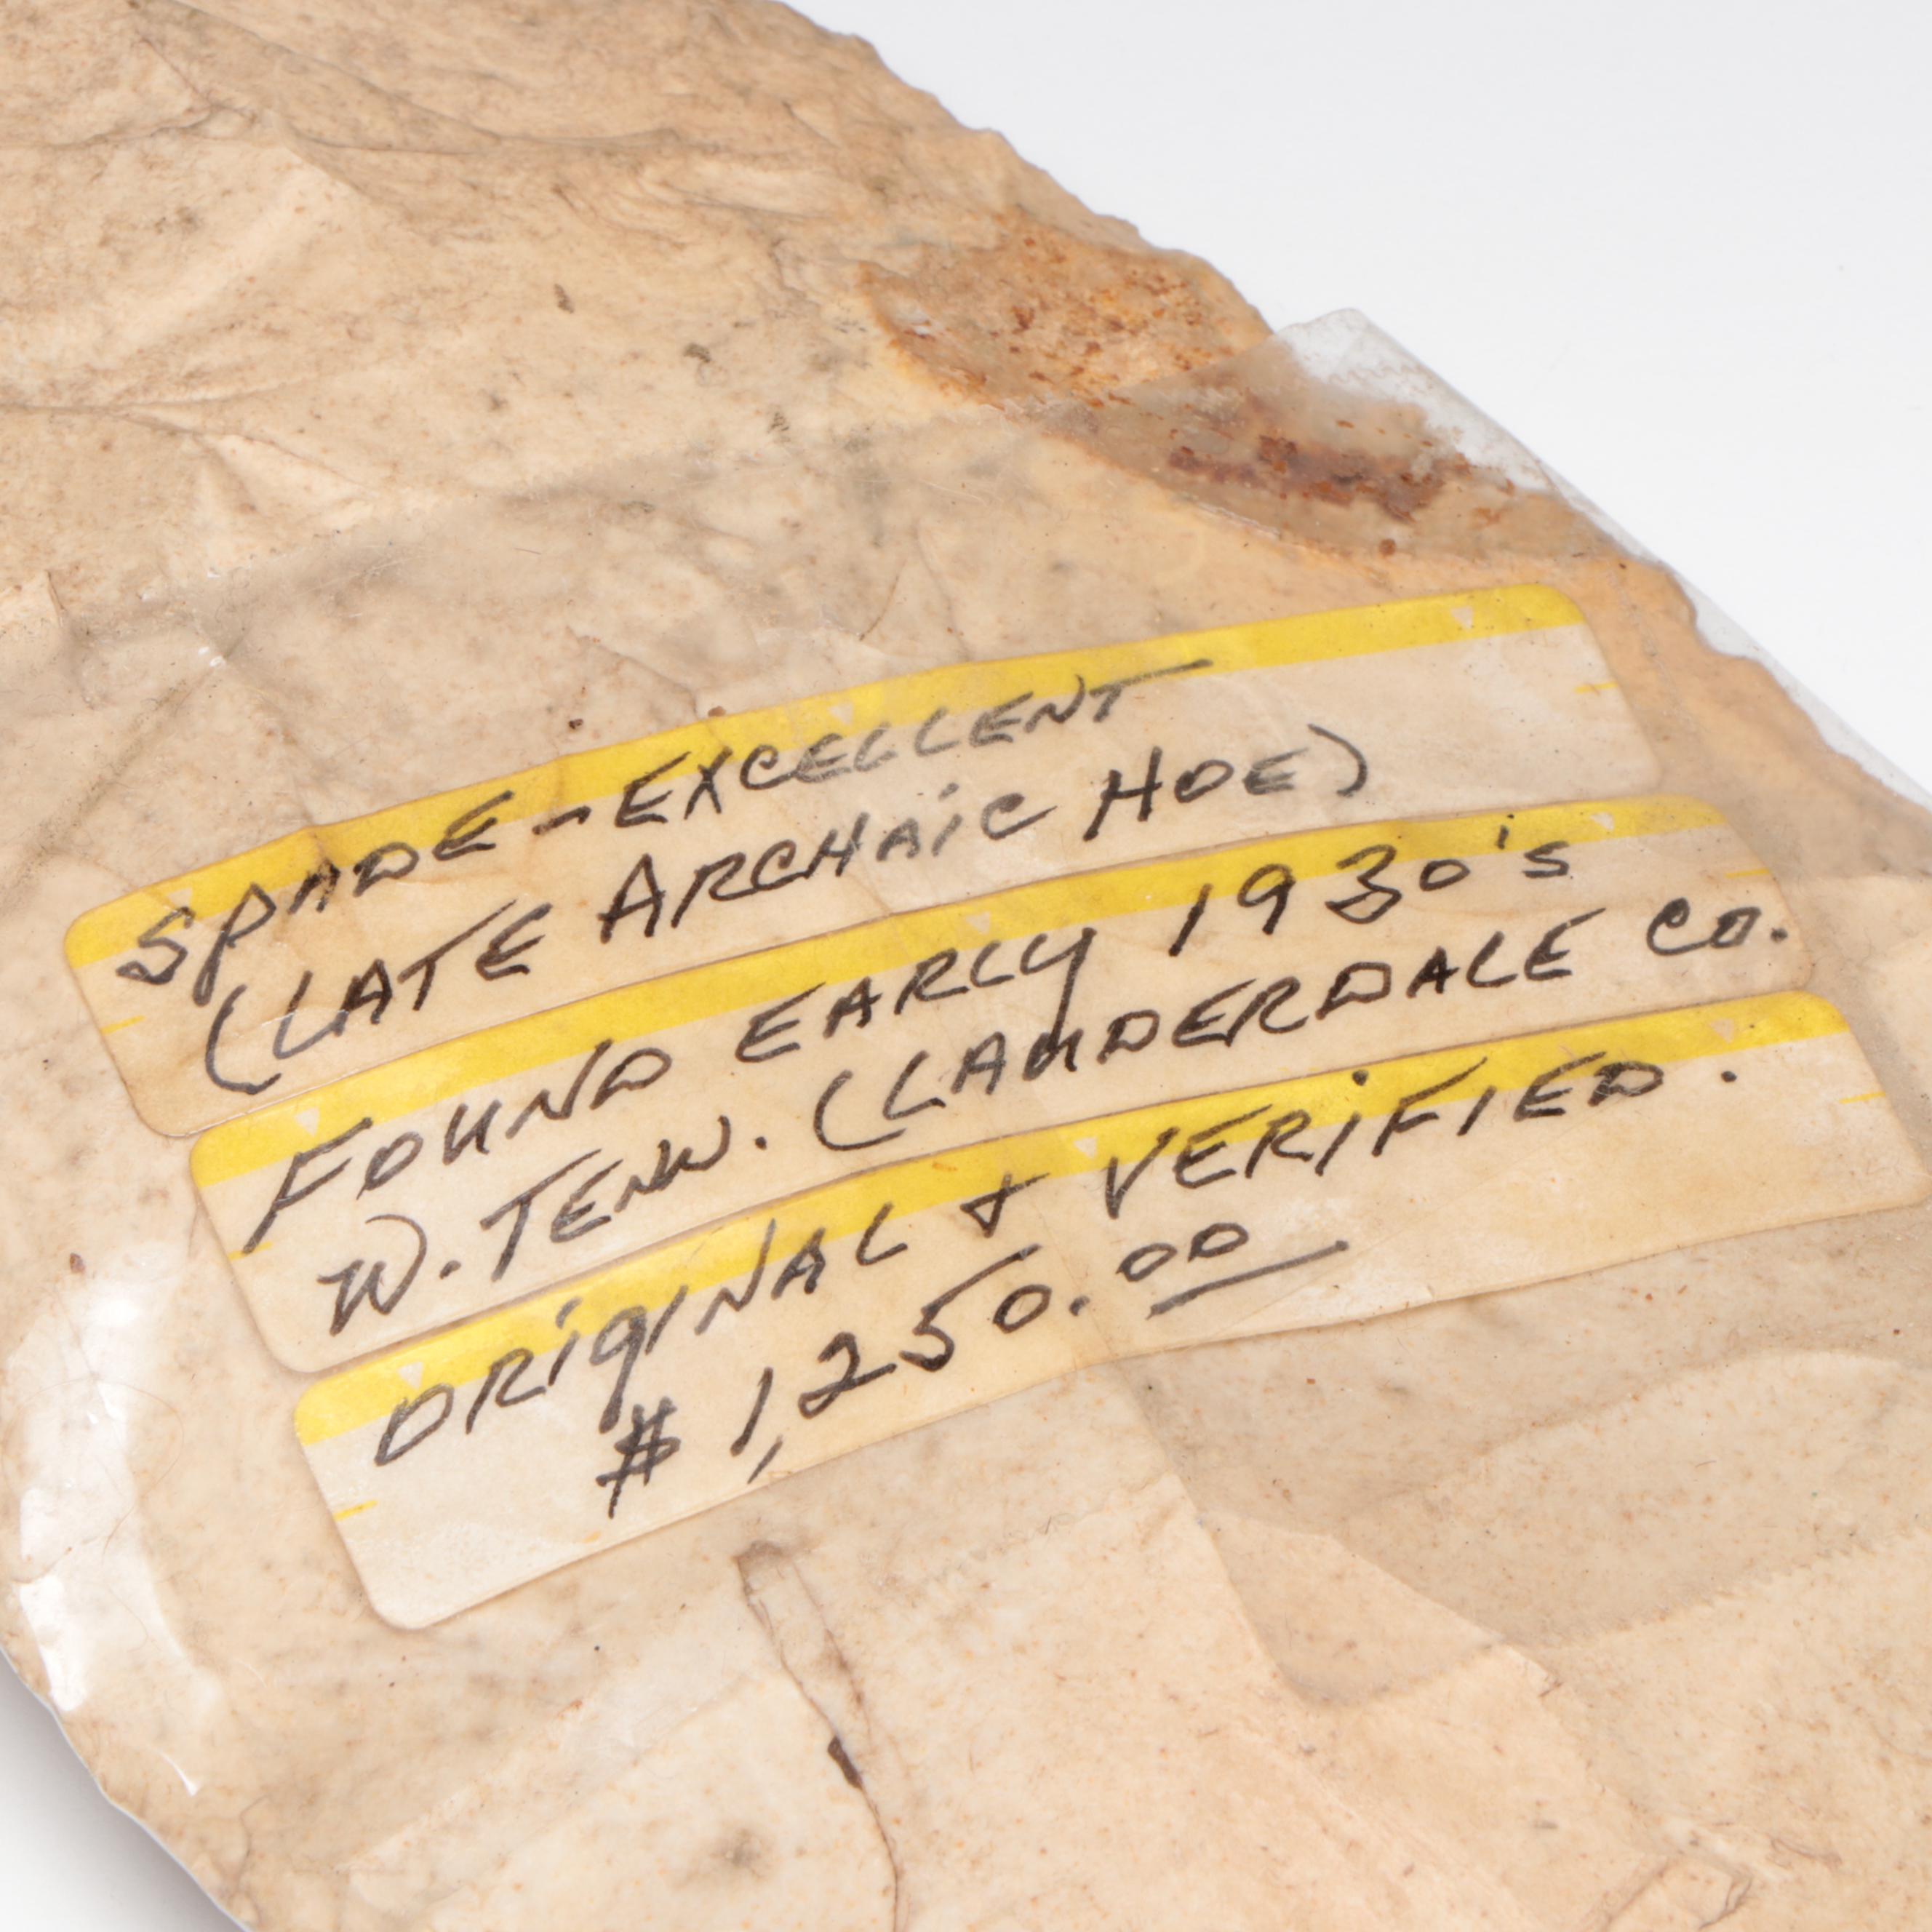 SPADE - EXCELLENT
(LATE ARCHAIC HOE)
FOUND EARLY 1930's
W. TENN. (LAUDERDALE CO.
ORIGINAL + VERIFIED.
$ 1,250.00